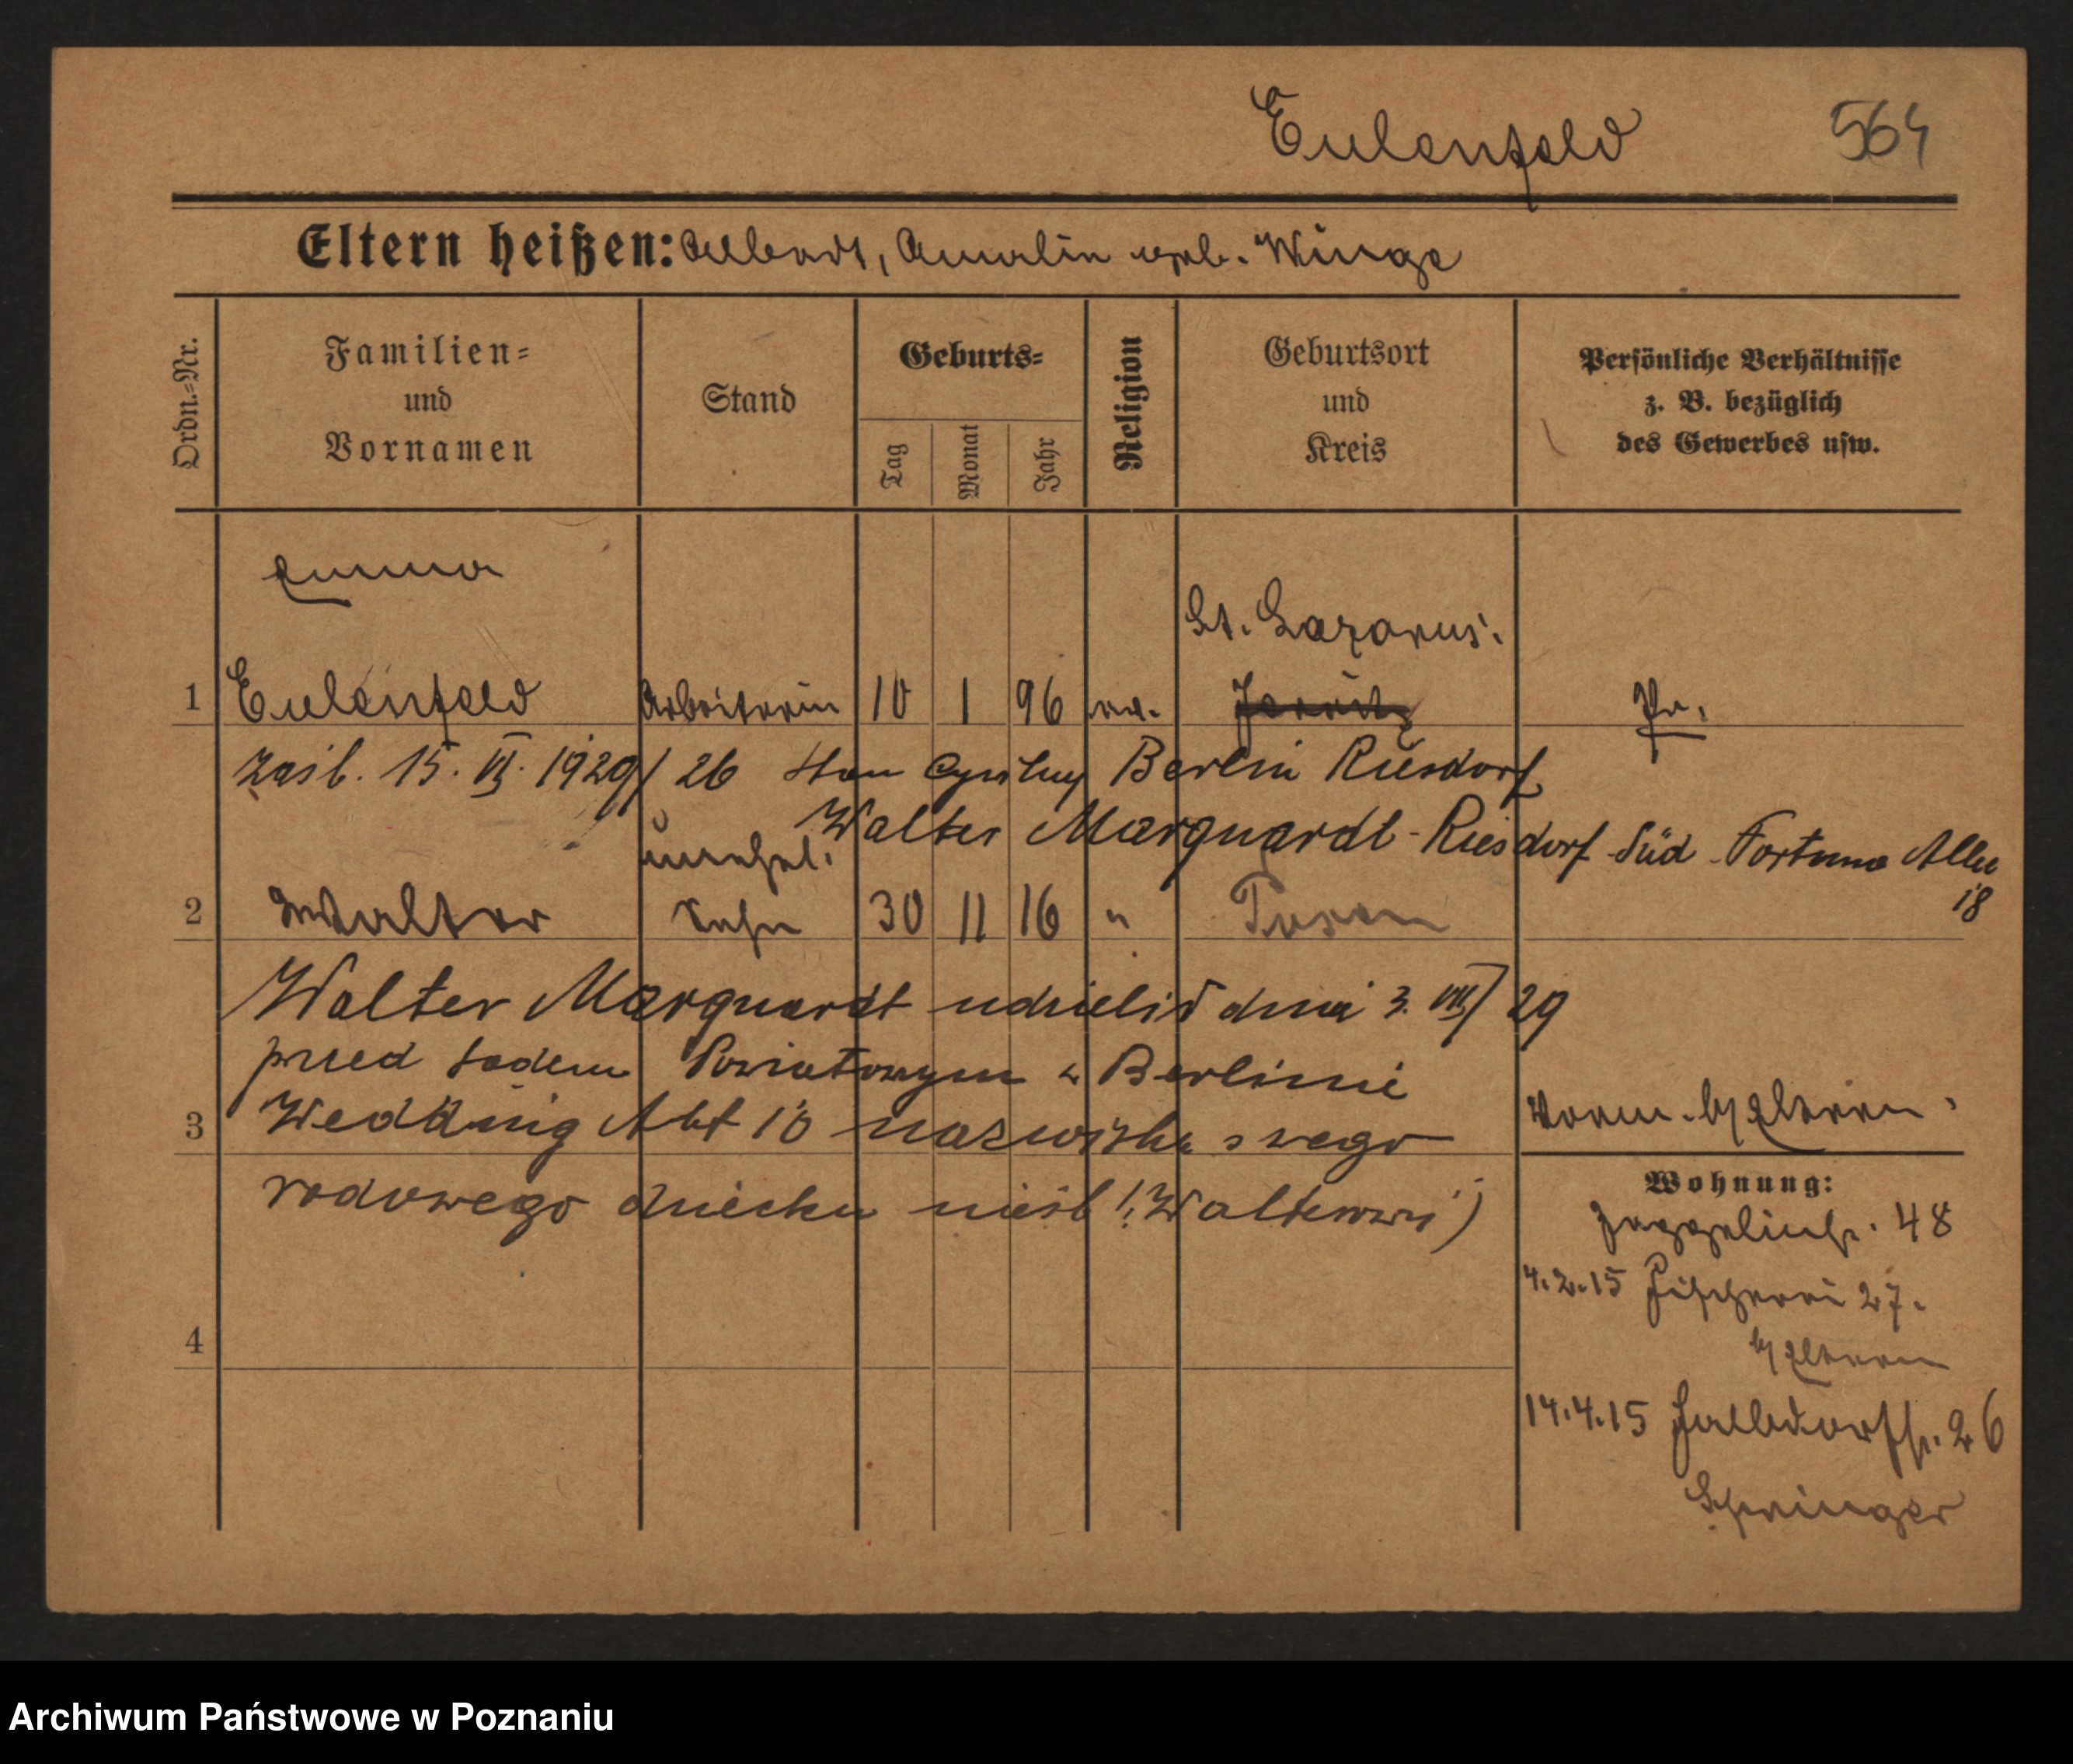 Eulenfeld 564
Eltern heißen: Albert, Amalie geb. Winge
Ordn.=Nr.
Familien=
und
Vornamen
Stand
Geburts=
Tag
Monat
Jahr
Religion
Geburtsort
und
Kreis
Persönliche Verhältnisse
z. B. bezüglich
des Gewerbes usw.
Emma
St. Lazarus.
1 Eulenfeld Arbeiterin 10 1 96 ev. Jersitz Pr.
zaśl. 15. VI. 1929/26 Stan Cywilny Berlin Rüsdorf
Walter Marquardt - Riesdorf Süd Fortuna Allee
18
unehel.
2 Walter Sohn 30 11 16 " Posen
Walter Marquardt udzielił dnia 3. VIII/29
przed Sądem Powiatowym w Berlinie
3 Wedding Abt 10 nazwiska swego
rodowego dziecku nieśl. (Walterowi)
4
Vorm. b/ Eltern.
Wohnung:
Zeppelinstr. 48
4.2.15 Fischerei 27.
b/ Eltern
14.4.15 Halbdorfstr. 26
Springer
Archiwum Państwowe w Poznaniu